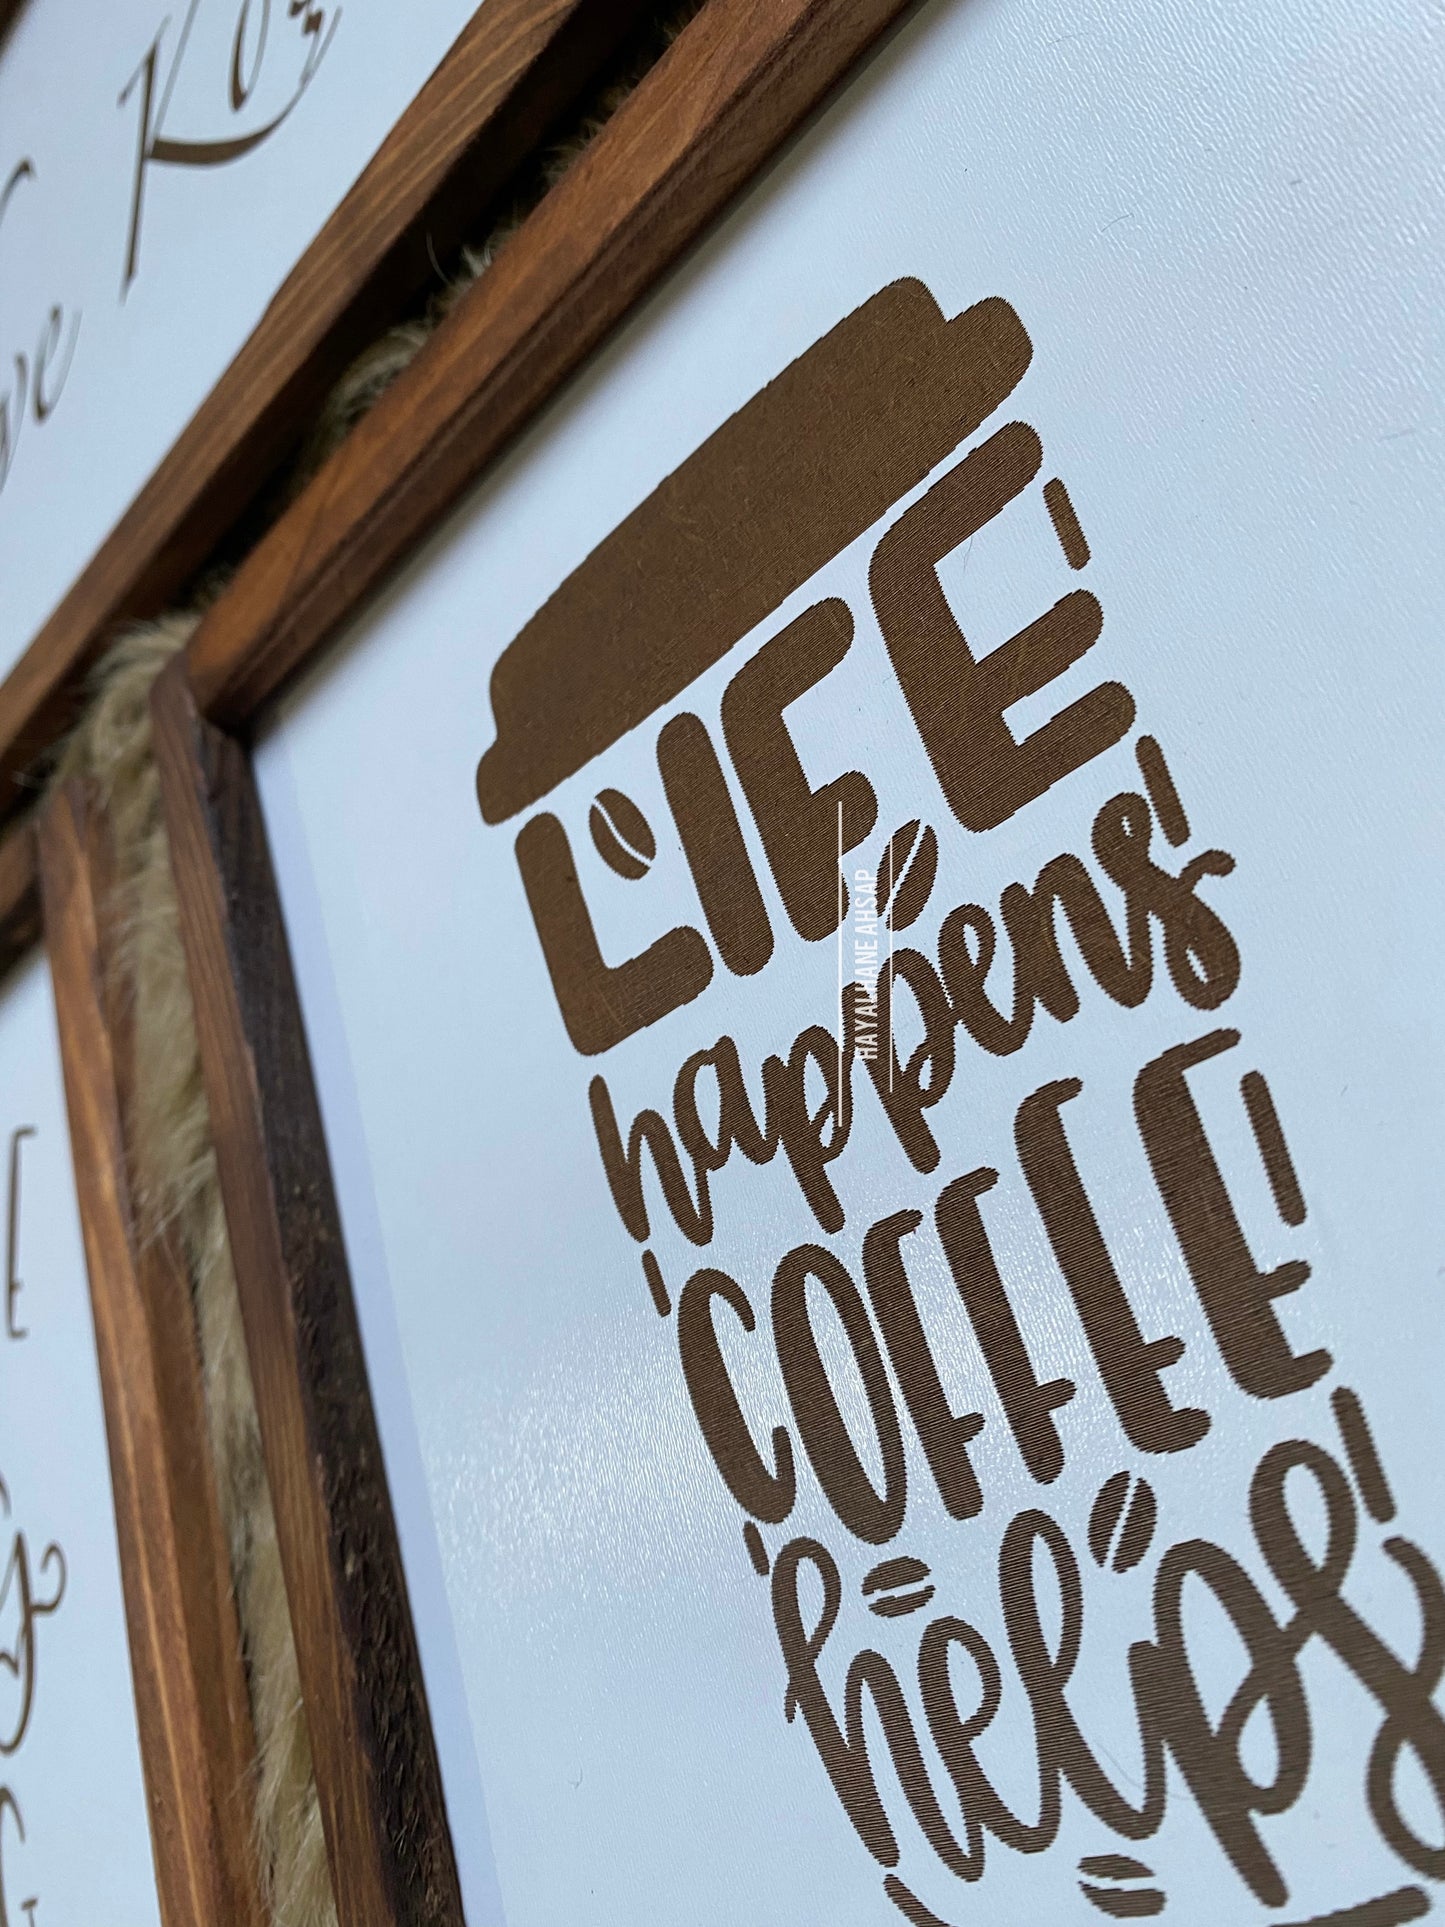 LIFE
happens
COFFEE
helps
HAYALHANE AHŞAP